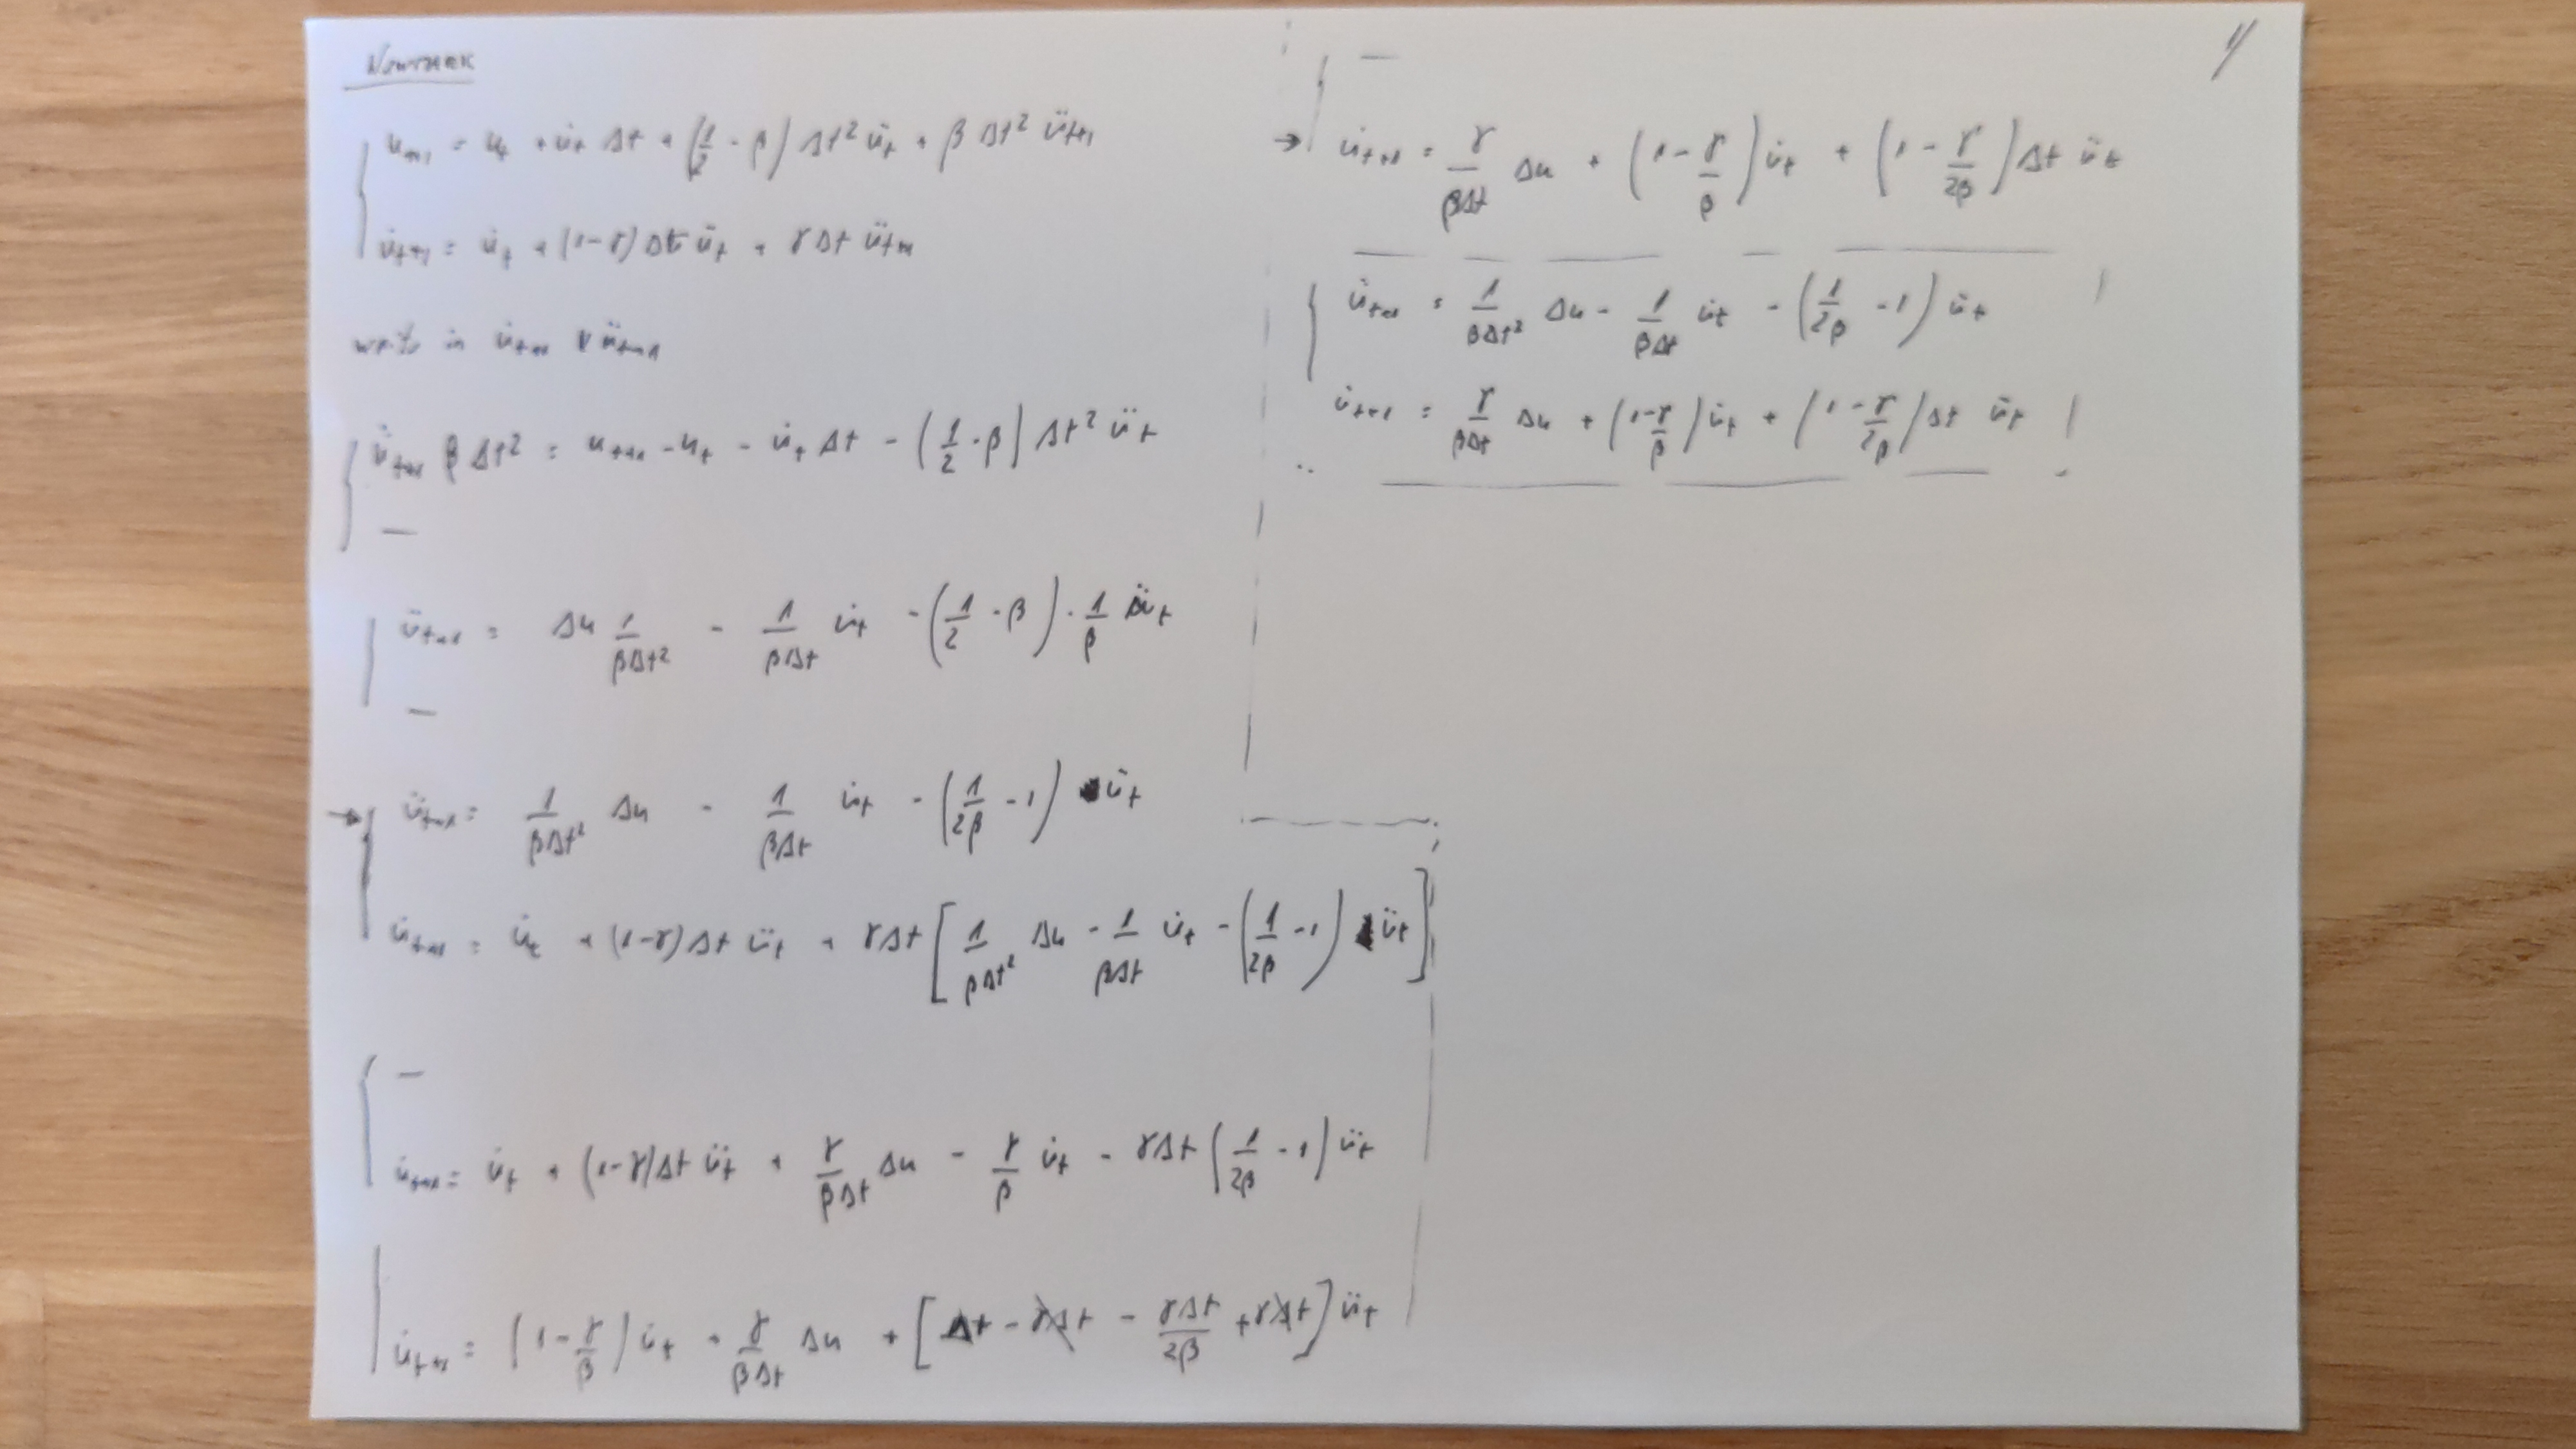 NEWMARK
u_{t+1} = u_t + u̇_t Δt + (1/2 - β) Δt² ü_t + β Δt² ü_{t+1}
u̇_{t+1} = u̇_t + (1-γ) Δt ü_t + γ Δt ü_{t+1}
write in u̇_{t+1} & ü_{t+1}
ü_{t+1} β Δt² = u_{t+1} - u_t - u̇_t Δt - (1/2 - β) Δt² ü_t
—
ü_{t+1} = Δu 1/(βΔt²) - 1/(βΔt) u̇_t - (1/2 - β) · 1/β ü_t
—
→ ü_{t+1} = 1/(βΔt²) Δu - 1/(βΔt) u̇_t - (1/(2β) - 1) ü_t
u̇_{t+1} = u̇_t + (1-γ) Δt ü_t + γΔt [ 1/(βΔt²) Δu - 1/(βΔt) u̇_t - (1/(2β) - 1) ü_t ]
—
u̇_{t+1} = u̇_t + (1-γ) Δt ü_t + γ/(βΔt) Δu - γ/β u̇_t - γΔt (1/(2β) - 1) ü_t
u̇_{t+1} = (1 - γ/β) u̇_t + γ/(βΔt) Δu + [ Δt - γΔt - γΔt/(2β) + γΔt ] ü_t
1/
—
→ u̇_{t+1} = γ/(βΔt) Δu + (1 - γ/β) u̇_t + (1 - γ/(2β)) Δt ü_t
ü_{t+1} = 1/(βΔt²) Δu - 1/(βΔt) u̇_t - (1/(2β) - 1) ü_t
u̇_{t+1} = γ/(βΔt) Δu + (1 - γ/β) u̇_t + (1 - γ/(2β)) Δt ü_t